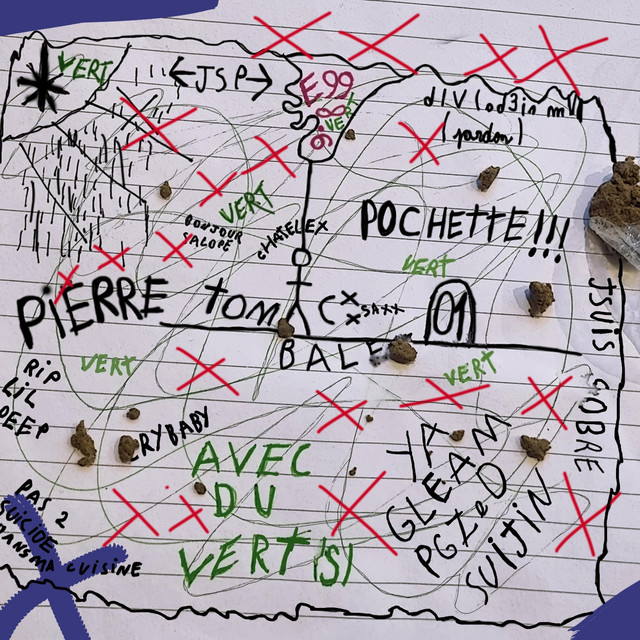 VERT
←JSP→
E.99
9.8
VERT
(pardon)
VERT
BONJOUR
SALOPE
CHATELEX
POCHETTE!!!
VERT
PIERRE
TOM
C
SAXX
01
BALE
JSUIS SOBRE
VERT
VERT
RIP
LIL
PEEP
CRYBABY
AVEC
DU
VERT(S)
YA
GLEAM
SUIJIN
PAS 2
SUICIDE
DANS MA CUISINE